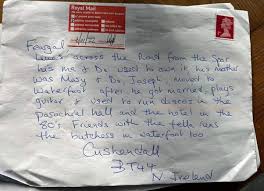 Royal Mail
Feargal
Lives across the Road from the Spar
his ma & Da used to own it, his mother
was Mary & Da Joseph, moved to
Waterfoot after he got married, plays
guitar & used to run discos in the
Parochial hall and the hotel in the
80's Friends with the fella runs
the butchers in waterfoot too
Cushendall
BT44
N. Ireland